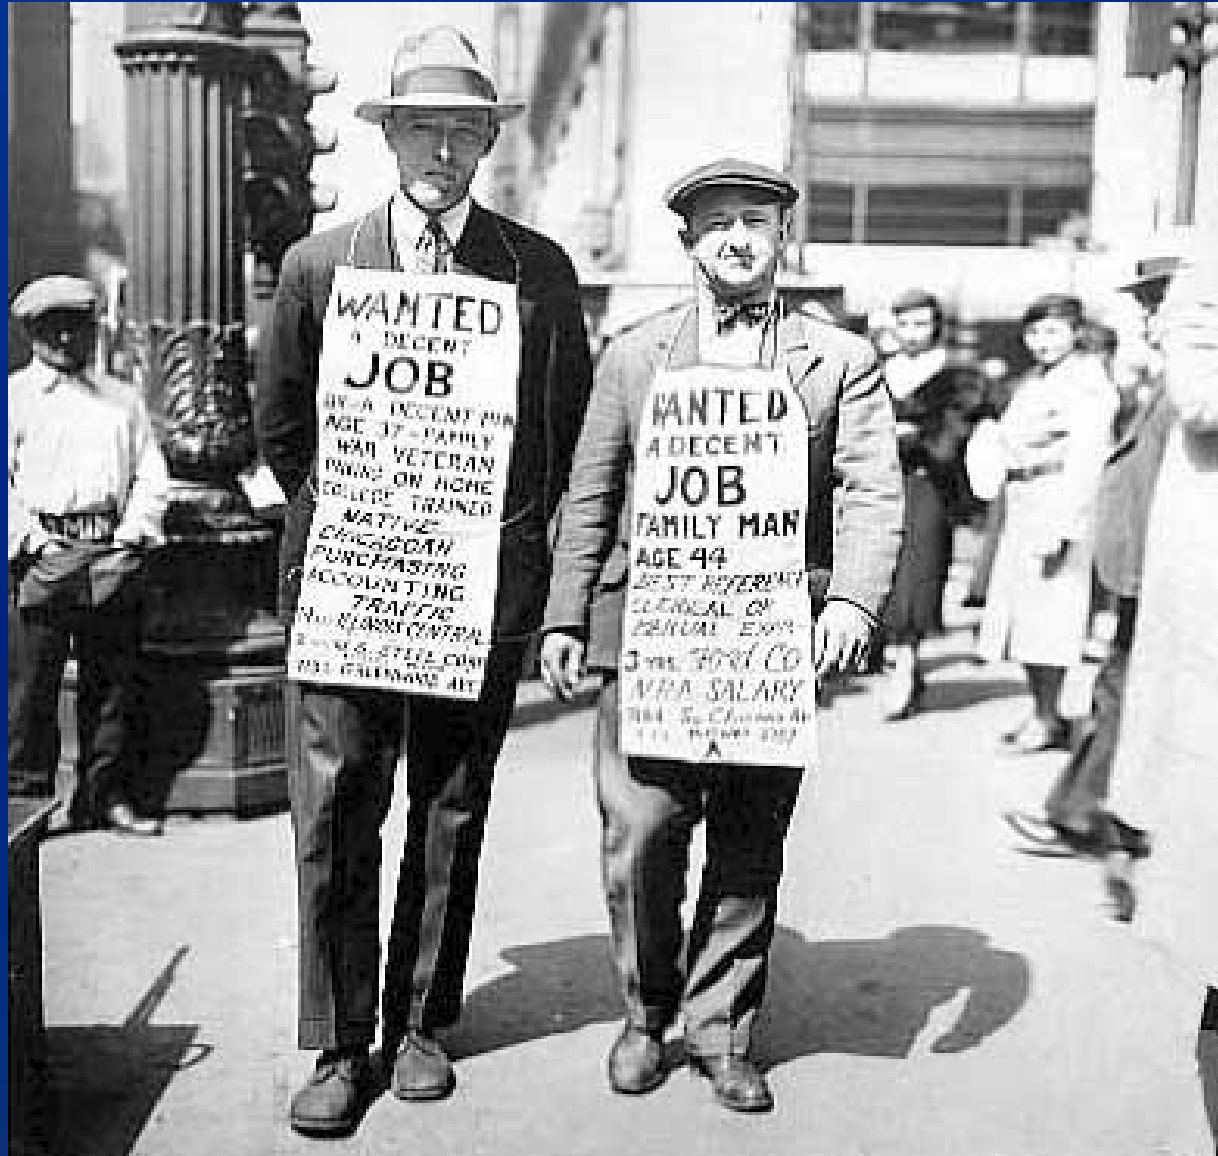 WANTED
A DECENT
JOB
BY A DECENT MAN
AGE 37-FAMILY
WAR VETERAN
ON HOME
COLLEGE TRAINED
NATIVE
CHICAGOAN
PURCHASING
ACCOUNTING
TRAFFIC
ILLINOIS CENTRAL
STEEL CORP
AVE
WANTED
A DECENT
JOB
FAMILY MAN
AGE 44
BEST REFERENCE
CLERICAL OR
MANUAL EXP.
3 YRS. FORD CO
N.R.A. SALARY
So.
A